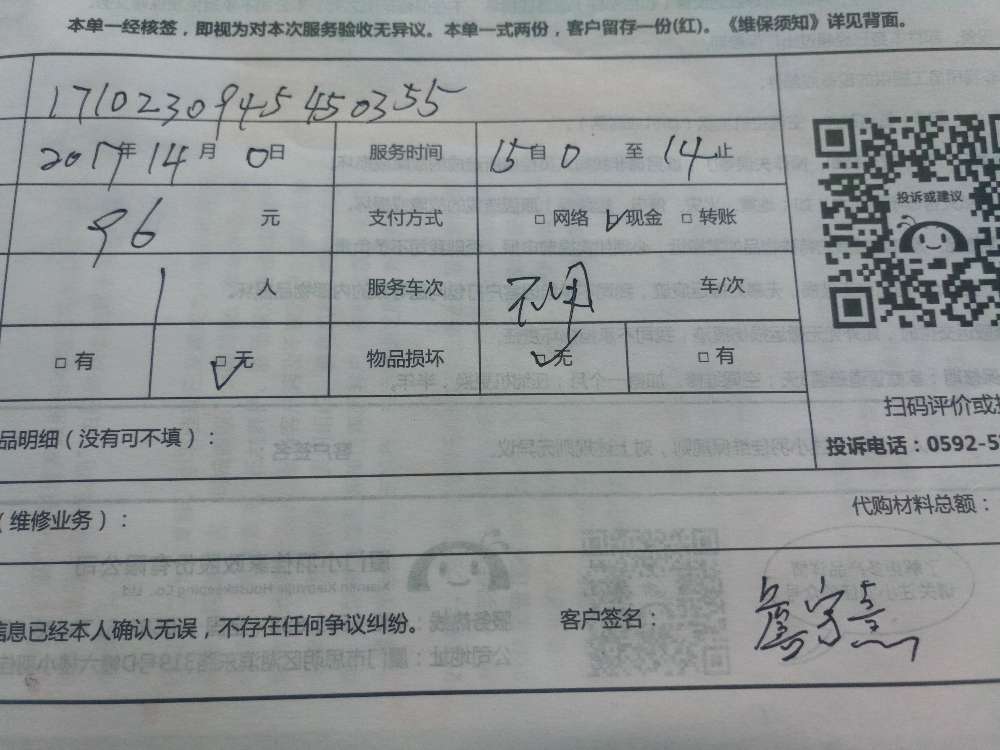 本单一经核签，即视为对本次服务验收无异议。本单一式两份，客户留存一份(红)。《维保须知》详见背面。
1710230945450355
2017年14月0日 服务时间 15自0至14止
96元 支付方式 □网络 ☑现金 □转账
投诉或建议
1 人 服务车次 不用 车/次
□有 ☑无 物品损坏 ☑无 □有
扫码评价或
品明细（没有可不填）：
投诉电话：0592-5
（维修业务）：
代购材料总额：
信息已经本人确认无误，不存在任何争议纠纷。 客户签名：